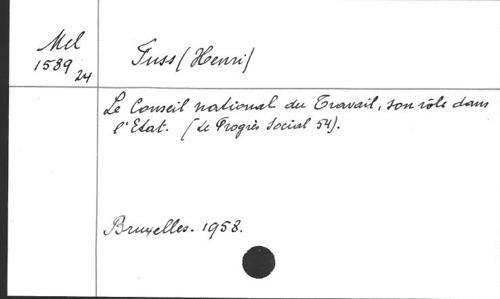 Mel
1589
24
Fuss (Henri)
Le Conseil national du Travail, son rôle dans
l'Etat. (Le Progrès Social 54).
Bruxelles. 1958.